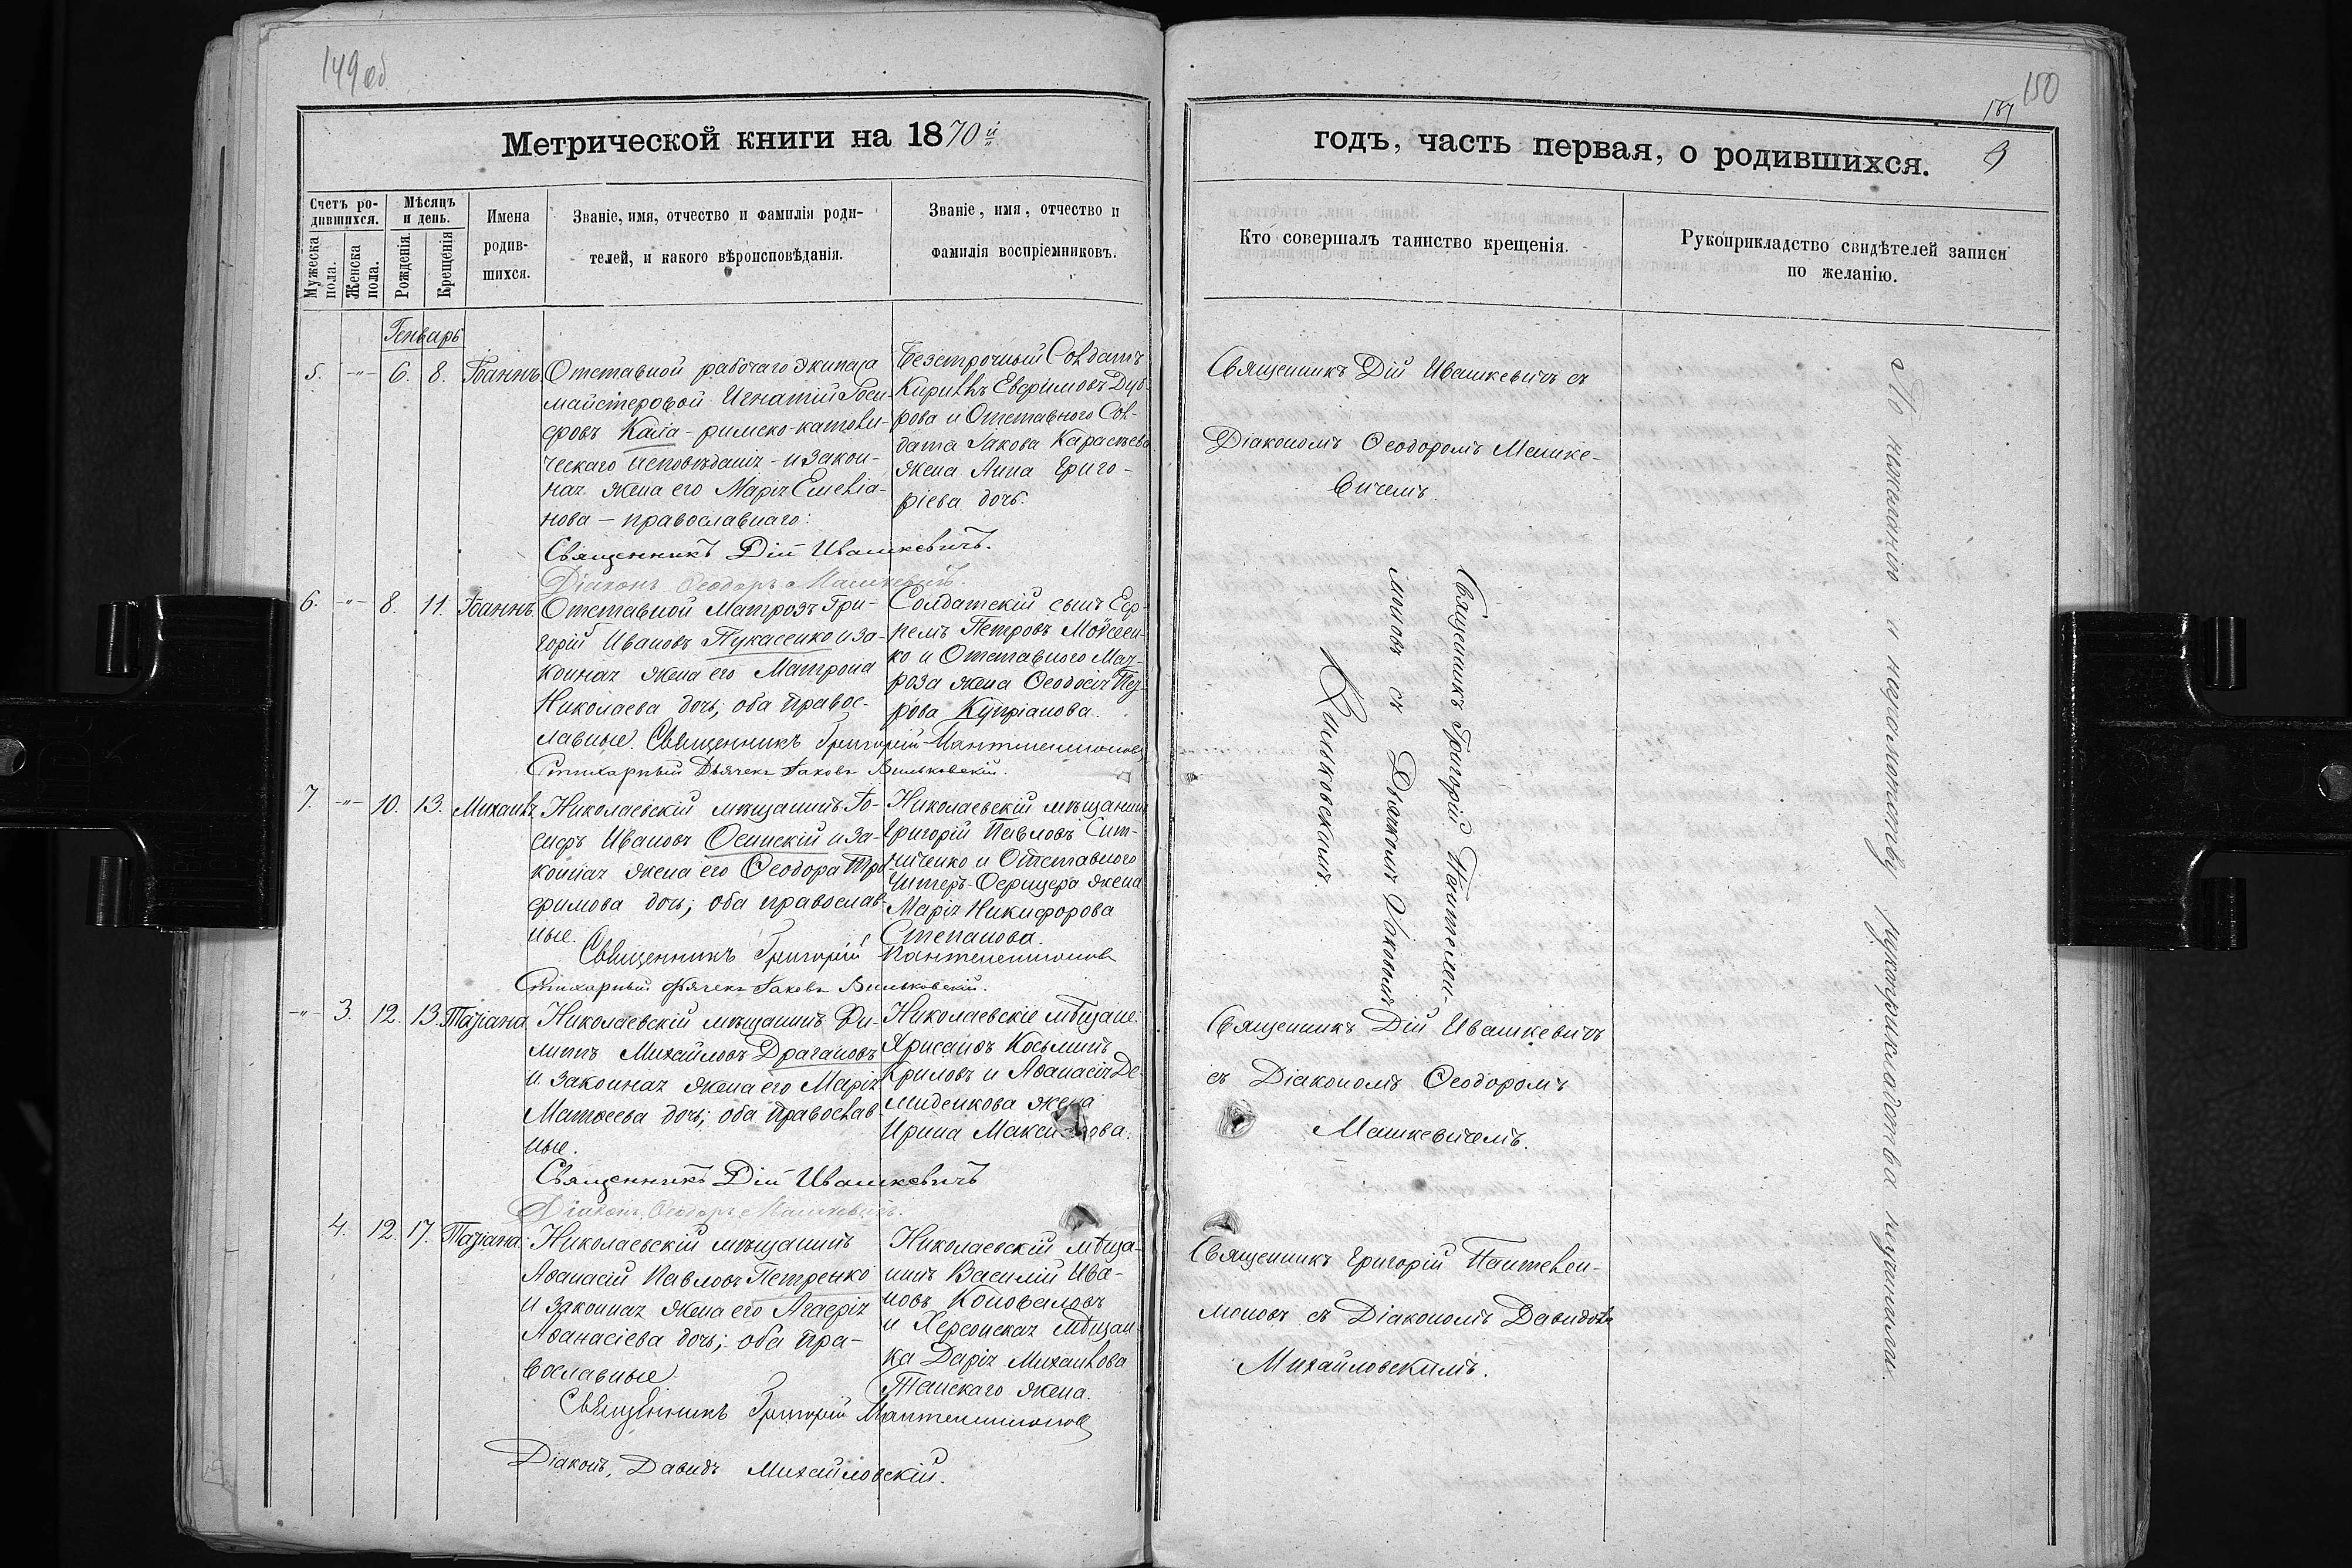 149 об
Метрической книги на 1870й
Счетъ ро-
дившихся.
Мѣсяцъ
и день.
Мужеска
пола.
Женска
пола.
Рожденія.
Крещенія
Имена
родив-
шихся.
Званіе, имя, отчество и фамилія роди-
телей, и какого вѣроисповѣданія.
Званіе, имя, отчество и
фамилія воспріемниковъ.
Генварь
5. -"- 6. 8. Іоаннъ.
Отставной рабочаго экипажа
майстеровой Игнатій Іоси-
фовъ Кала - римско-католи-
ческаго исповѣданія - и закон-
ная жена его Марія Емеліа-
нова - православнаго:
Священникъ Дій Ивашкевичъ.
Діаконъ Ѳеодоръ Машкевичъ.
Безсрочный Солдатъ
Кирилъ Евфимовъ
и Отставного Сол-
дата Іакова
жена Анна Григо-
ріева дочь.
6. -"- 8. 11. Іоаннъ.
Отставной Матрозъ Гри-
горій Ивановъ Пукасенко и за-
конная жена его Матрона
Николаева дочь; оба правос-
лавные. Священникъ Григорій Пантелеимоновъ
Стихарный Дьячекъ Іаковъ Вильковскій.
Солдатскій сынъ Еф-
ремъ Петровъ Мойсеен-
ко и Отставного Мат-
роза жена Ѳеодосія Пет-
рова Купріанова.
7. -"- 10. 13. Михаилъ
Николаевскій мѣщанинъ Іо-
сифъ Ивановъ Осинскій и за-
конная жена его Ѳеодора Тро-
фимова дочь; оба православ-
ные.
Священникъ Григорій Пантелеимоновъ
Стихарный Дьячекъ Іаковъ Вильковскій.
Николаевскій мѣщанинъ
Григорій Павловъ Сит-
ниченко и Отставного
Унтеръ-Офицера жена
Марія Никифорова
Степанова.
-"- 3. 12. 13. Татіана
Николаевскій мѣщанинъ Фи-
липъ Михайловъ Драгановъ
и законная жена его Марія
Матвеева дочь; оба православ-
ные.
Священникъ Дій Ивашкевичъ
Діаконъ Ѳеодоръ Машкевичъ.
Николаевскіе мѣщане:
Хрисанѳъ Косьминъ
Криловъ и Аѳанасія Де-
миденкова жена
Ирина Макси ова.
4. 12. 17. Татіана.
Николаевскій мѣщанинъ
Аѳанасій Павловъ Петренко
и законная жена его Агафія
Аѳанасіева дочь; оба пра-
вославные.
Священникъ Григорій Пантелеимоновъ
Діаконъ, Давидъ Михайловскій.
Николаевскій мѣща-
нинъ Василій Ива-
новъ Коноваловъ
и Херсонская мѣщан-
ка Дарія Михаилова
жена.
150
годъ, часть первая, о родившихся.
Кто совершалъ таинство крещенія.
Рукоприкладство свидѣтелей записи
по желанію.
Священникъ Дій Ивашкевичъ съ
Діакономъ Ѳеодоромъ Машке-
вичемъ.
Священникъ Григорій Пантелеи-
моновъ съ Дьячкомъ Іаковомъ
Вильковскимъ.
Священникъ Дій Ивашкевичъ
съ Діакономъ Ѳеодоромъ
Машкевичемъ.
Священникъ Григорій Пантелеи-
моновъ съ Діакономъ Давидомъ
Михайловскимъ.
По нежеланію и неграмотству рукоприкладства не учинили.